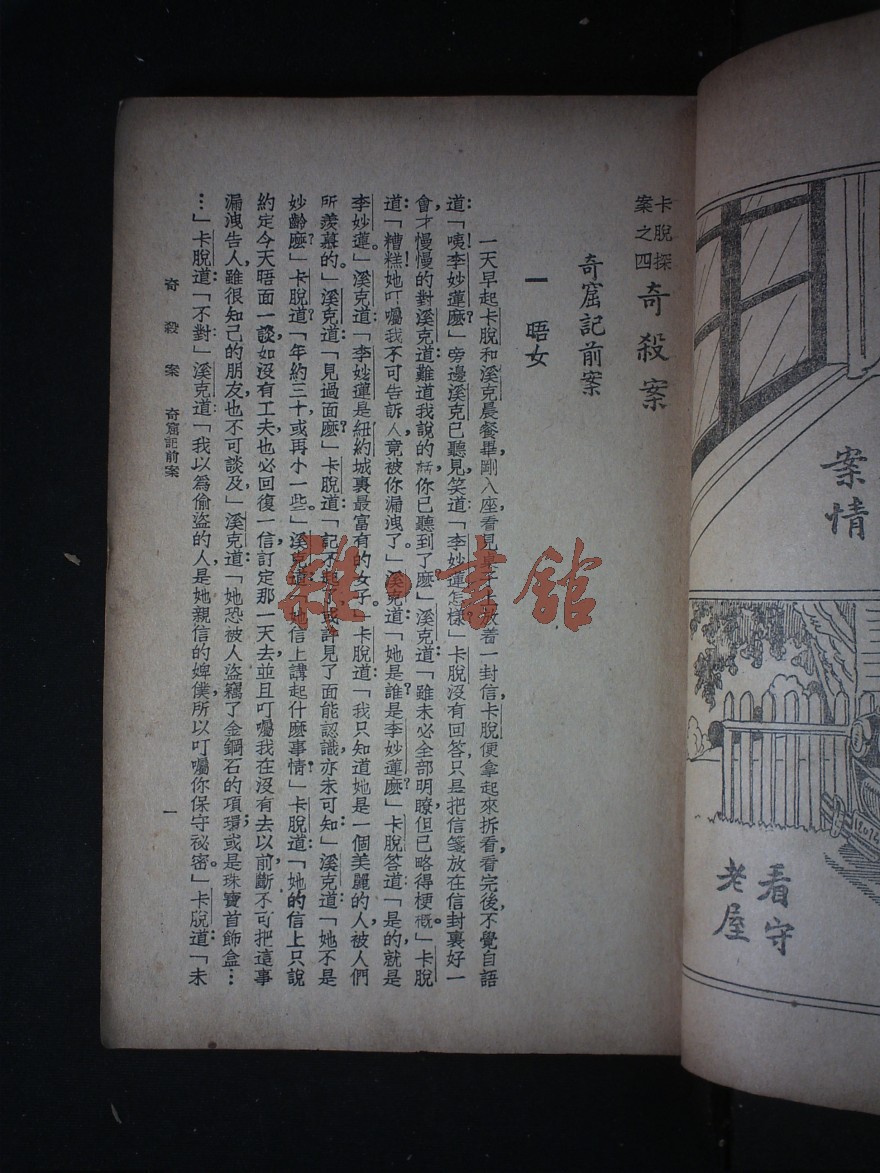 卡脫探
案之四
奇殺案
奇窟記前案
一　晤女
一天早起卡脫和溪克晨餐畢，剛入座，看見桌子上放着一封信，卡脫便拿起來拆看，看完後，不覺自語
道：「咦！李妙蓮麽」旁邊溪克已聽見，笑道：「李妙蓮怎樣」卡脫沒有回答，只是把信箋放在信封裏，好一
會，才慢慢的對溪克道：難道我說的話，你已聽到了麽」溪克道：「雖未必全部明瞭，但已略得梗槪。」卡脫
道：「糟糕！她叮囑我不可告訴人，竟被你漏洩了。」溪克道：「她是誰？是李妙蓮麽？」卡脫答道：「是的，就是
李妙蓮。」溪克道：「李妙蓮是紐約城裏最富有的女子。」卡脫道：「我只知道她是一個美麗的人，被人們
所羨慕的。」溪克道：「見過面麽？」卡脫道：「記不起了，或許見了面能認識，亦未可知」溪克道：「她不是
妙齡麽？」卡脫道：「年約三十，或再小一些。」溪克道：「她信上講起什麽事情？」卡脫道：「她的信上只說
約定今天晤面一談，如沒有工夫，也必回復一信，訂定那一天去，並且叮囑我在沒有去以前，斷不可把這事
漏洩告人，雖很知己的朋友，也不可談及」溪克道：「她恐被人盜竊了金鋼石的項環，或是珠寶首飾盒…
…」卡脫道：「不對」溪克道：「我以爲偷盜的人，是她親信的婢僕，所以叮囑你保守祕密。」卡脫道：「未
奇殺案　奇窟記前案
一
案情
看守
老屋